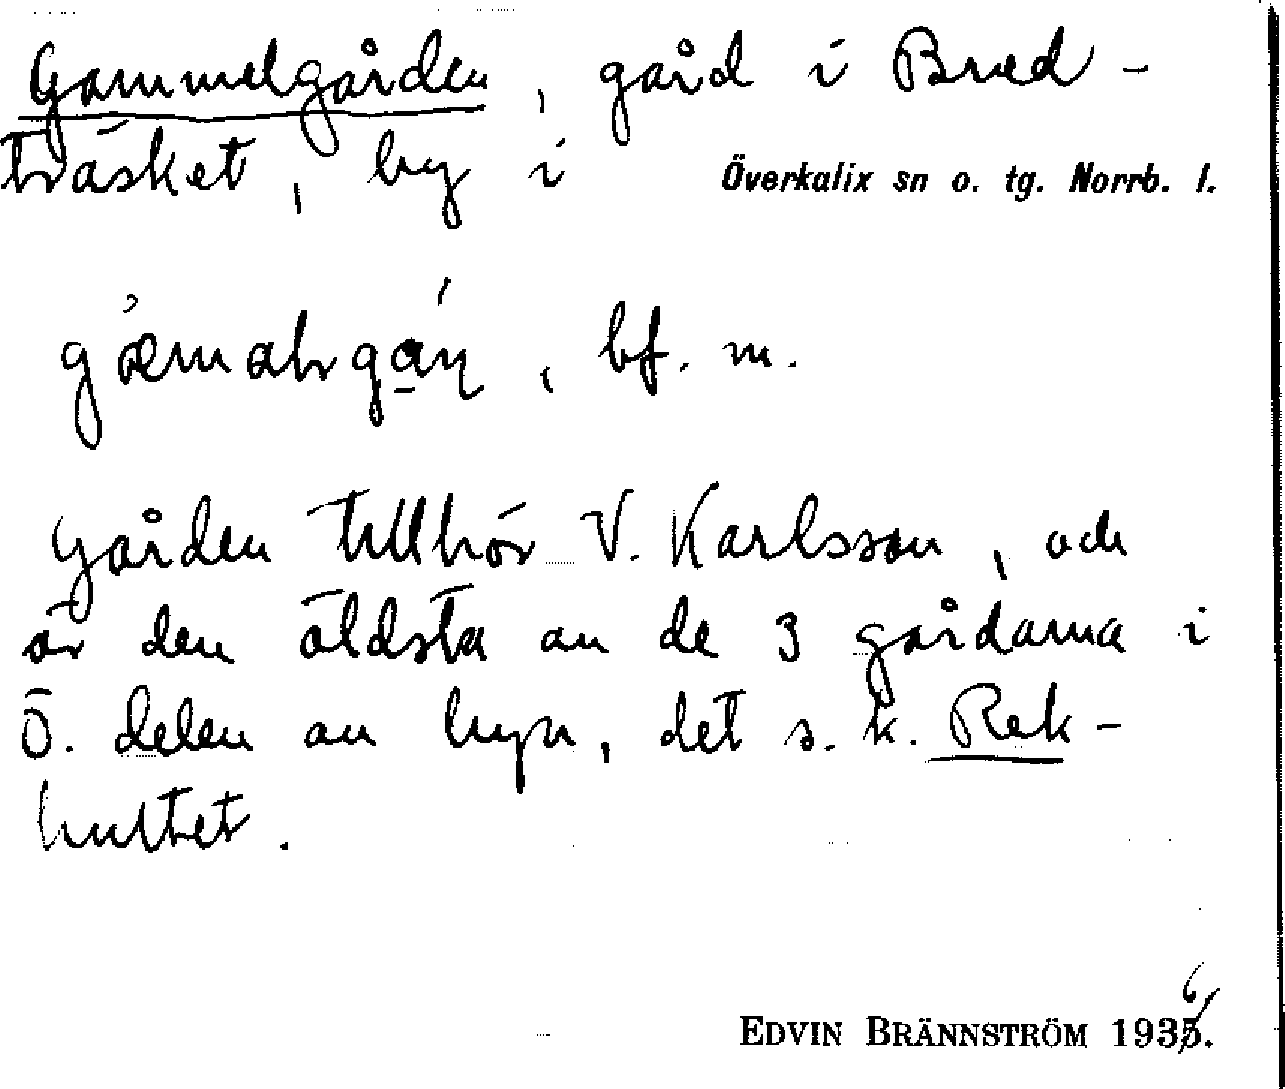 Gammelgården, gård i Bred-
träsket, by i Överkalix sn o. tg. Norrb. l.
bf. m.
Gården tillhör V. Karlsson, och
är den äldsta av de 3 gårdarna i
ö. delen av byn, det s. k. Rek-
hultet.
EDVIN BRÄNNSTRÖM 1936.